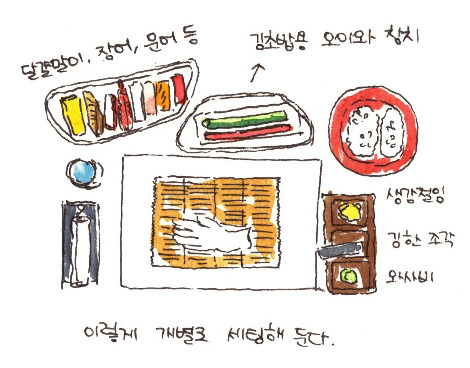 달걀말이, 장어, 문어 등
김초밥용 오이와 참치
생강절임
김한 조각
와사비
이렇게 개별로 세팅해 둔다.